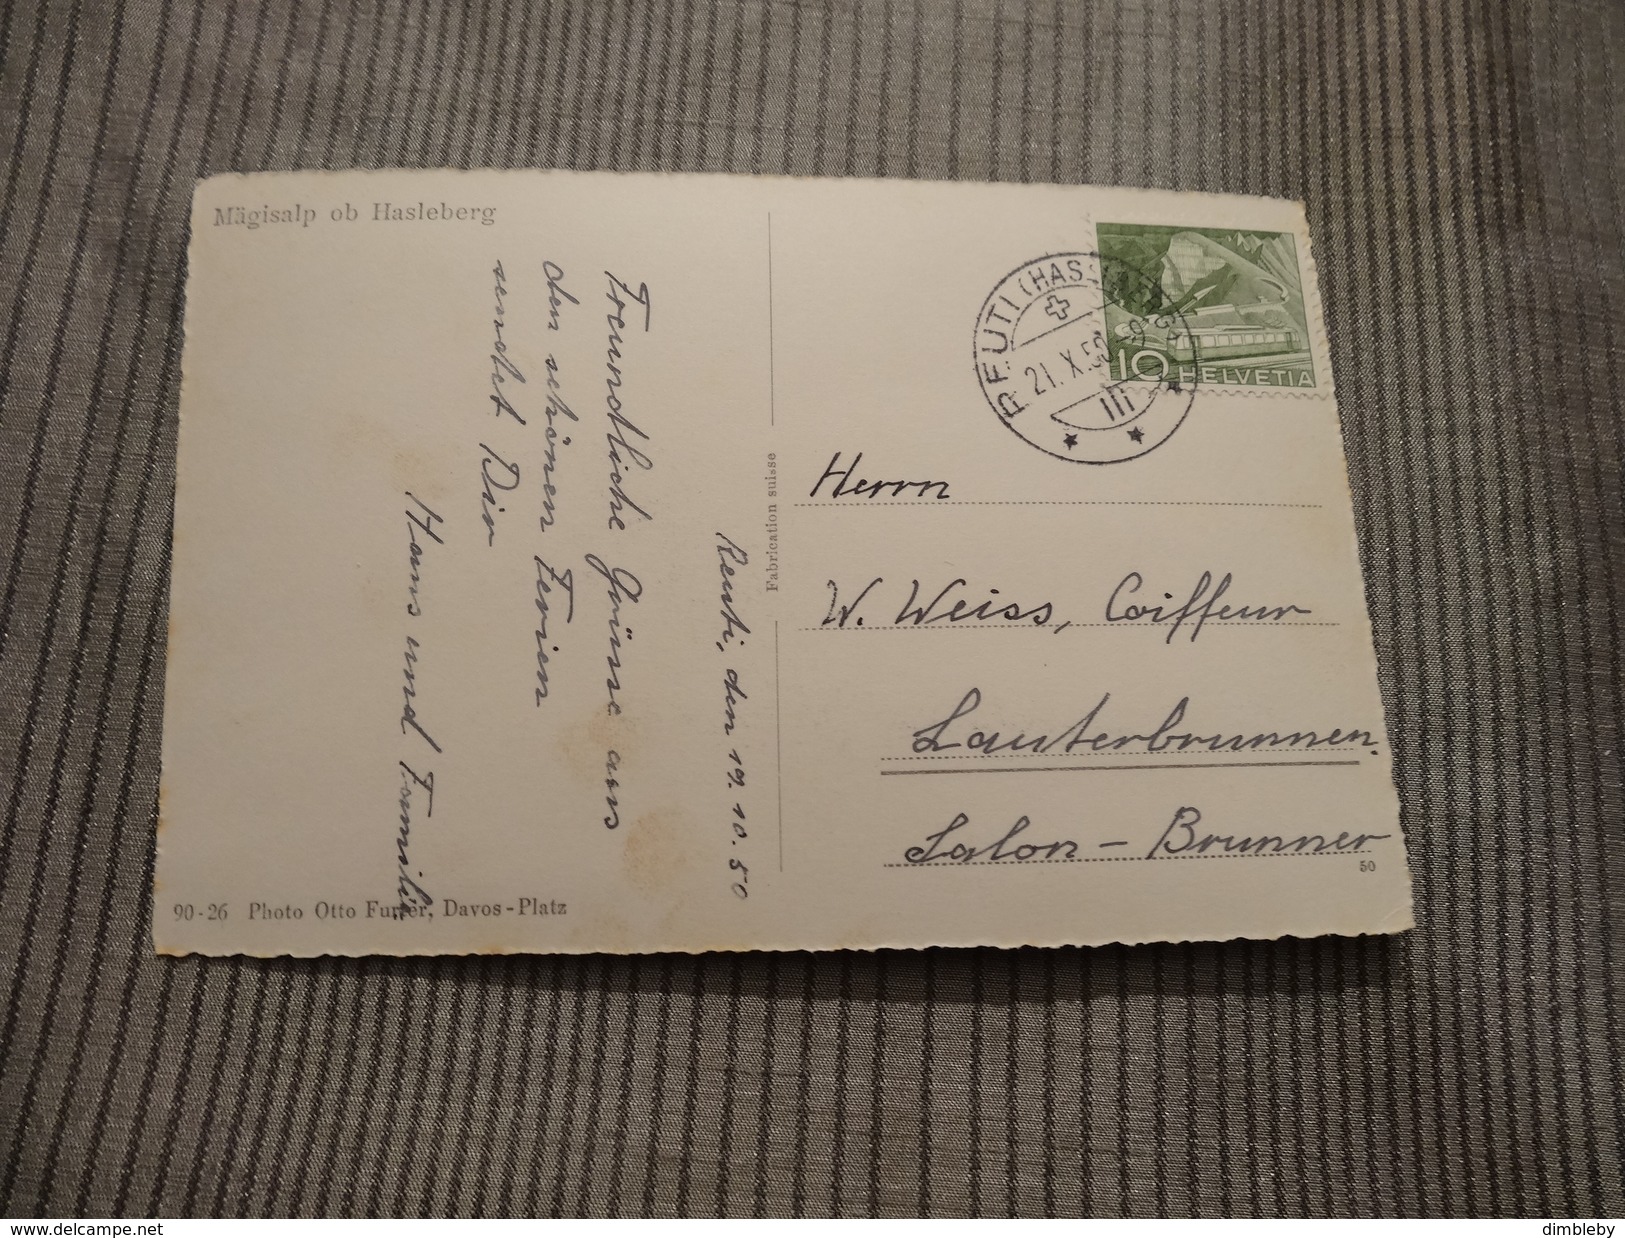 Mägisalp ob Hasleberg
Reuti, den 19. 10. 50
Freundliche Grüsse aus
den schönen Ferien
sendet Dir
Hans und Familie
90-26 Photo Otto Furter, Davos-Platz
Fabrication suisse
REUTI (HASLIBERG)
21. X. 50
10 HELVETIA
Herrn
W. Weiss, Coiffeur
Lauterbrunnen.
Salon - Brunner
50
www.delcampe.net
dimbleby